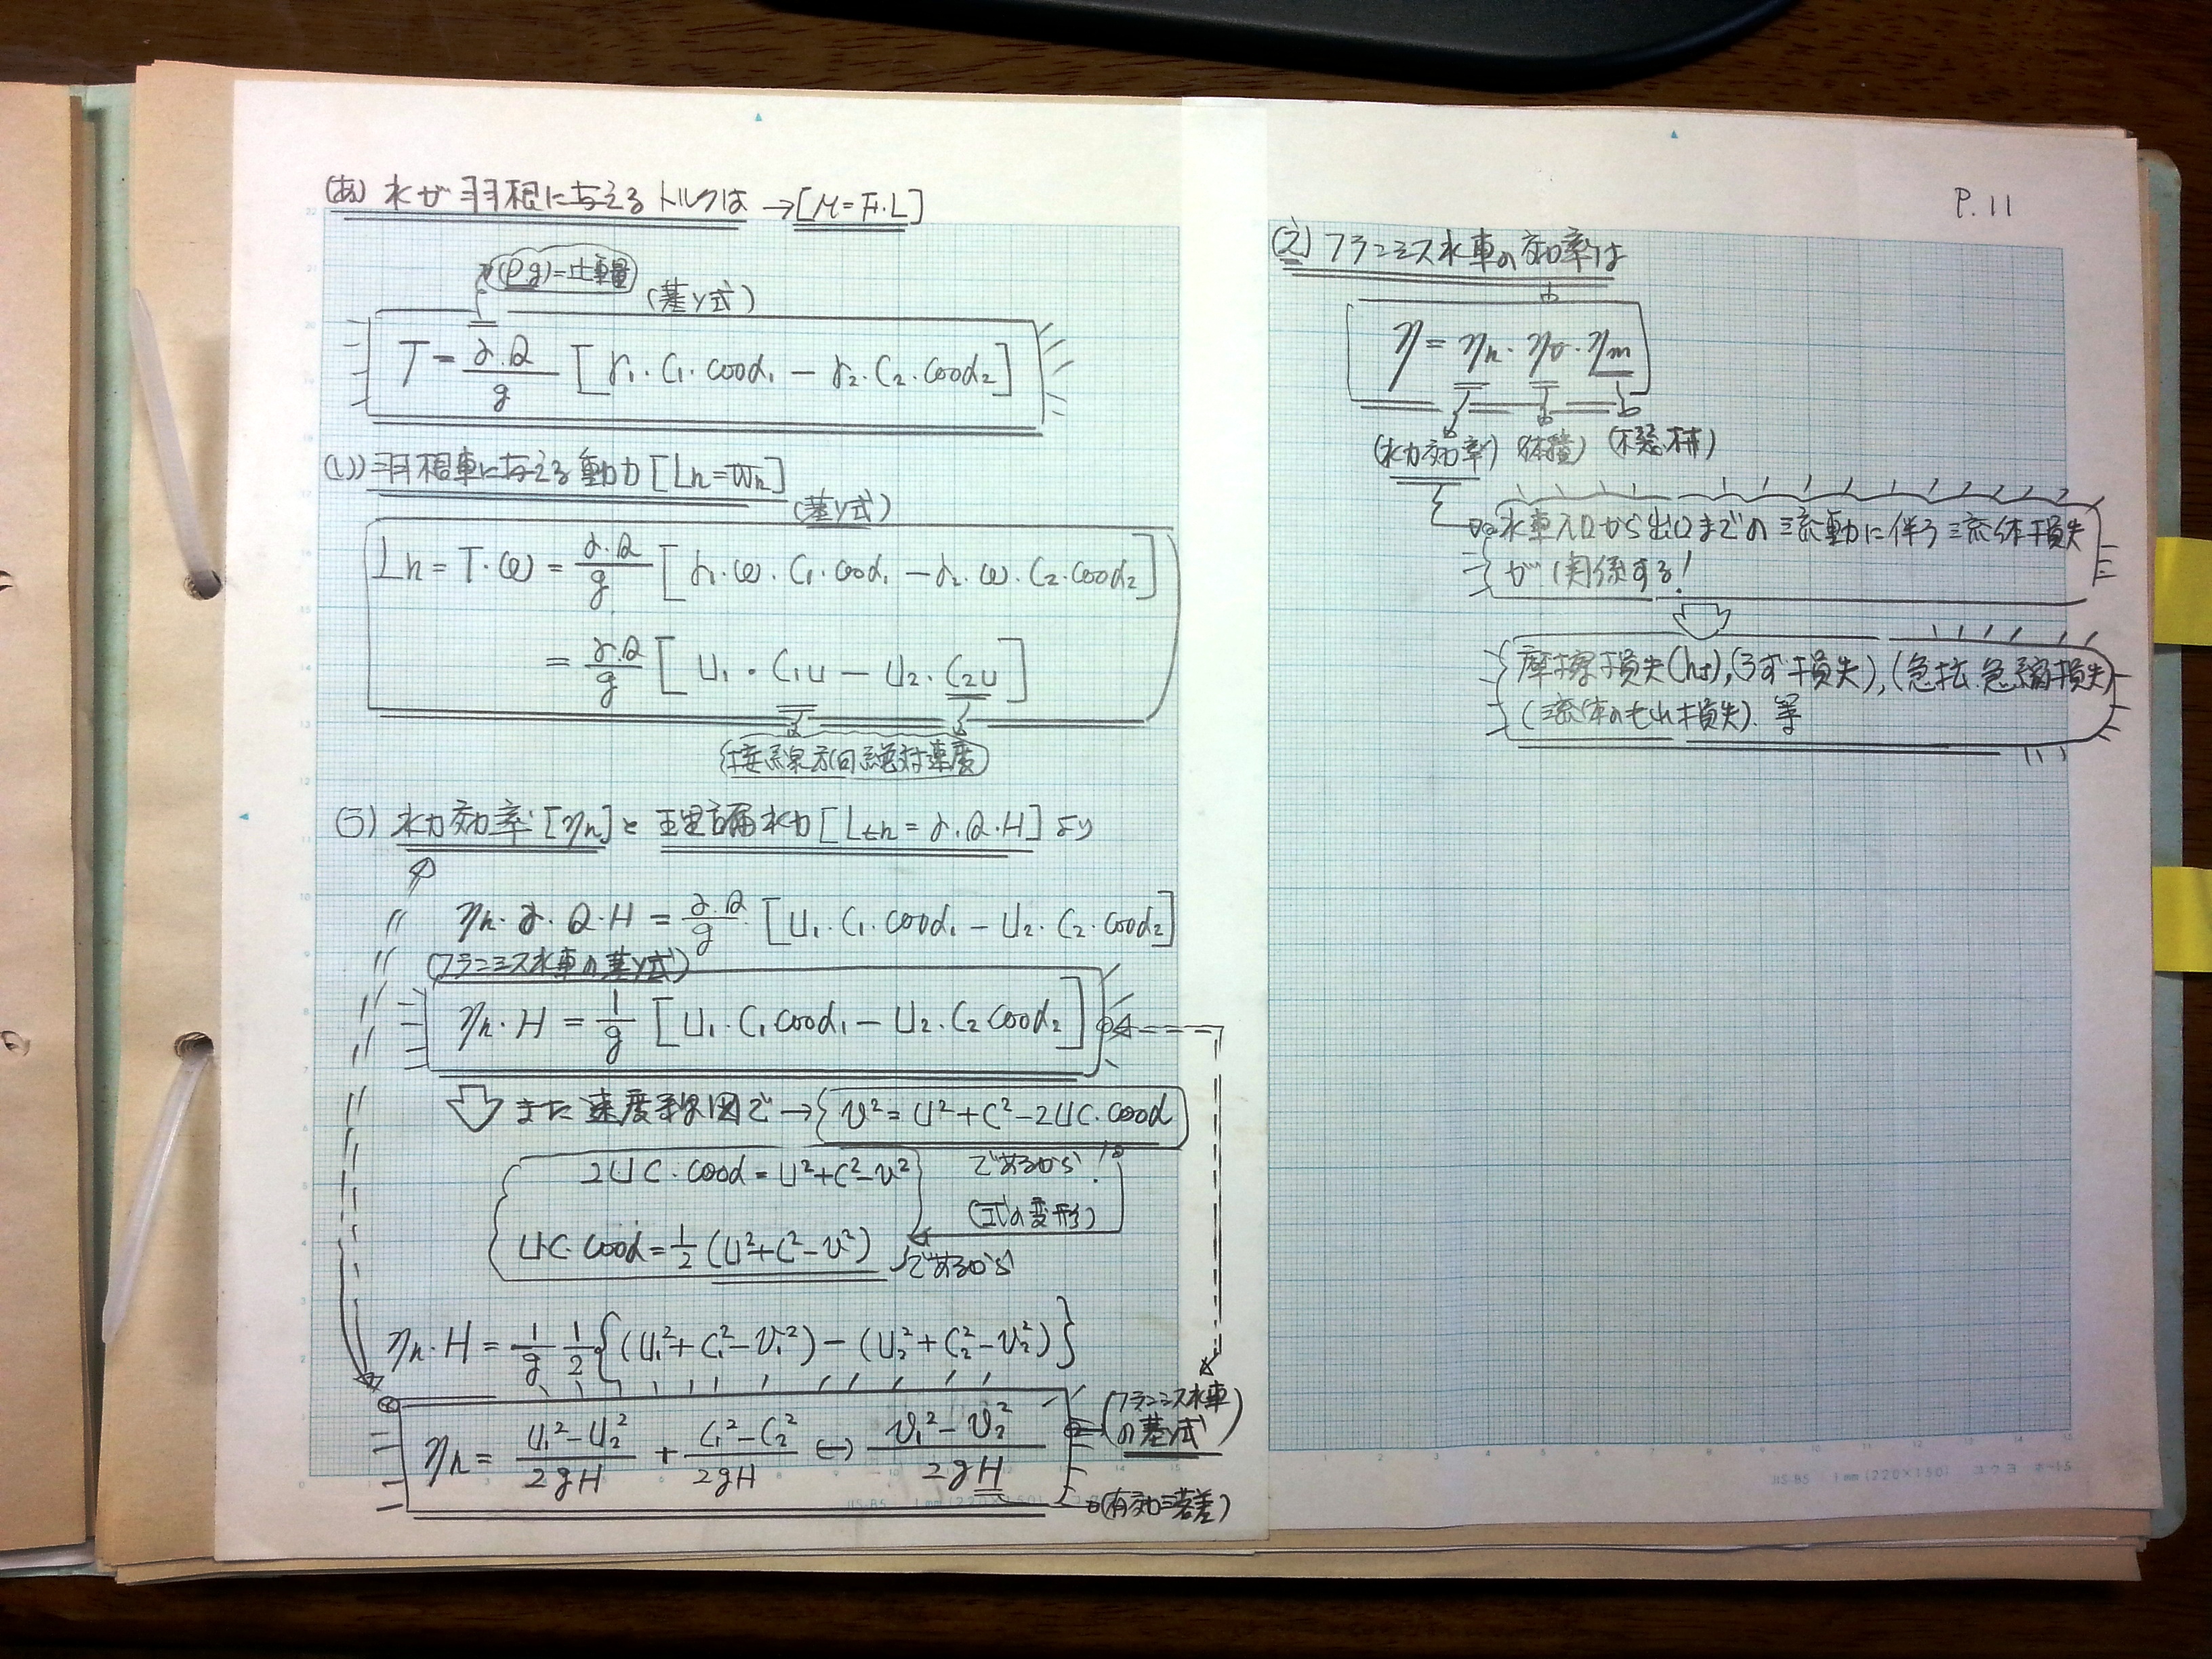 (あ) 水が羽根に与えるトルクは →[M=F・L]
(ρg)=比重量
(基ソ式)
T = γ.Q/g [r₁・C₁・cosα₁ − r₂・C₂・cosα₂]
(い) 羽根車に与える動力 [Lh=Wh]
(基ソ式)
Lh = T・ω = γ.Q/g [r₁・ω・C₁・cosα₁ − r₂・ω・C₂・cosα₂]
= γ.Q/g [U₁・C₁u − U₂・C₂u]
(接線方向絶対速度)
(う) 水力効率[ηh]と 理論水力[Lth = γ.Q.H]より
ηh・γ・Q・H = γ.Q/g [U₁・C₁・cosα₁ − U₂・C₂・cosα₂]
(フランシス水車の基ソ式)
ηh・H = 1/g [U₁・C₁cosα₁ − U₂・C₂cosα₂]
また速度線図で→ v² = U² + C² − 2UC・cosα
2UC・cosα = U² + C² − v²
であるから!
(式の変形)
UC・cosα = 1/2 (U² + C² − v²)
であるから
ηh・H = 1/g 1/2 {(U₁² + C₁² − v₁²) − (U₂² + C₂² − v₂²)}
ηh = U₁² − U₂²/2gH + C₁² − C₂²/2gH (−) v₁² − v₂²/2gH
(フランシス水車
の基ソ式)
(有効落差)
P.11
(え) フランシス水車の効率は
η = ηh・ηv・ηm
(水力効率) (体積) (機械)
水車入口から出口までの流動に伴う流体損失
が関係する!
摩擦損失(hf),(うず損失),(急拡.急縮損失)
(流体のもれ損失).等
US-B5 1mm(220×150) コクヨ ホ-15